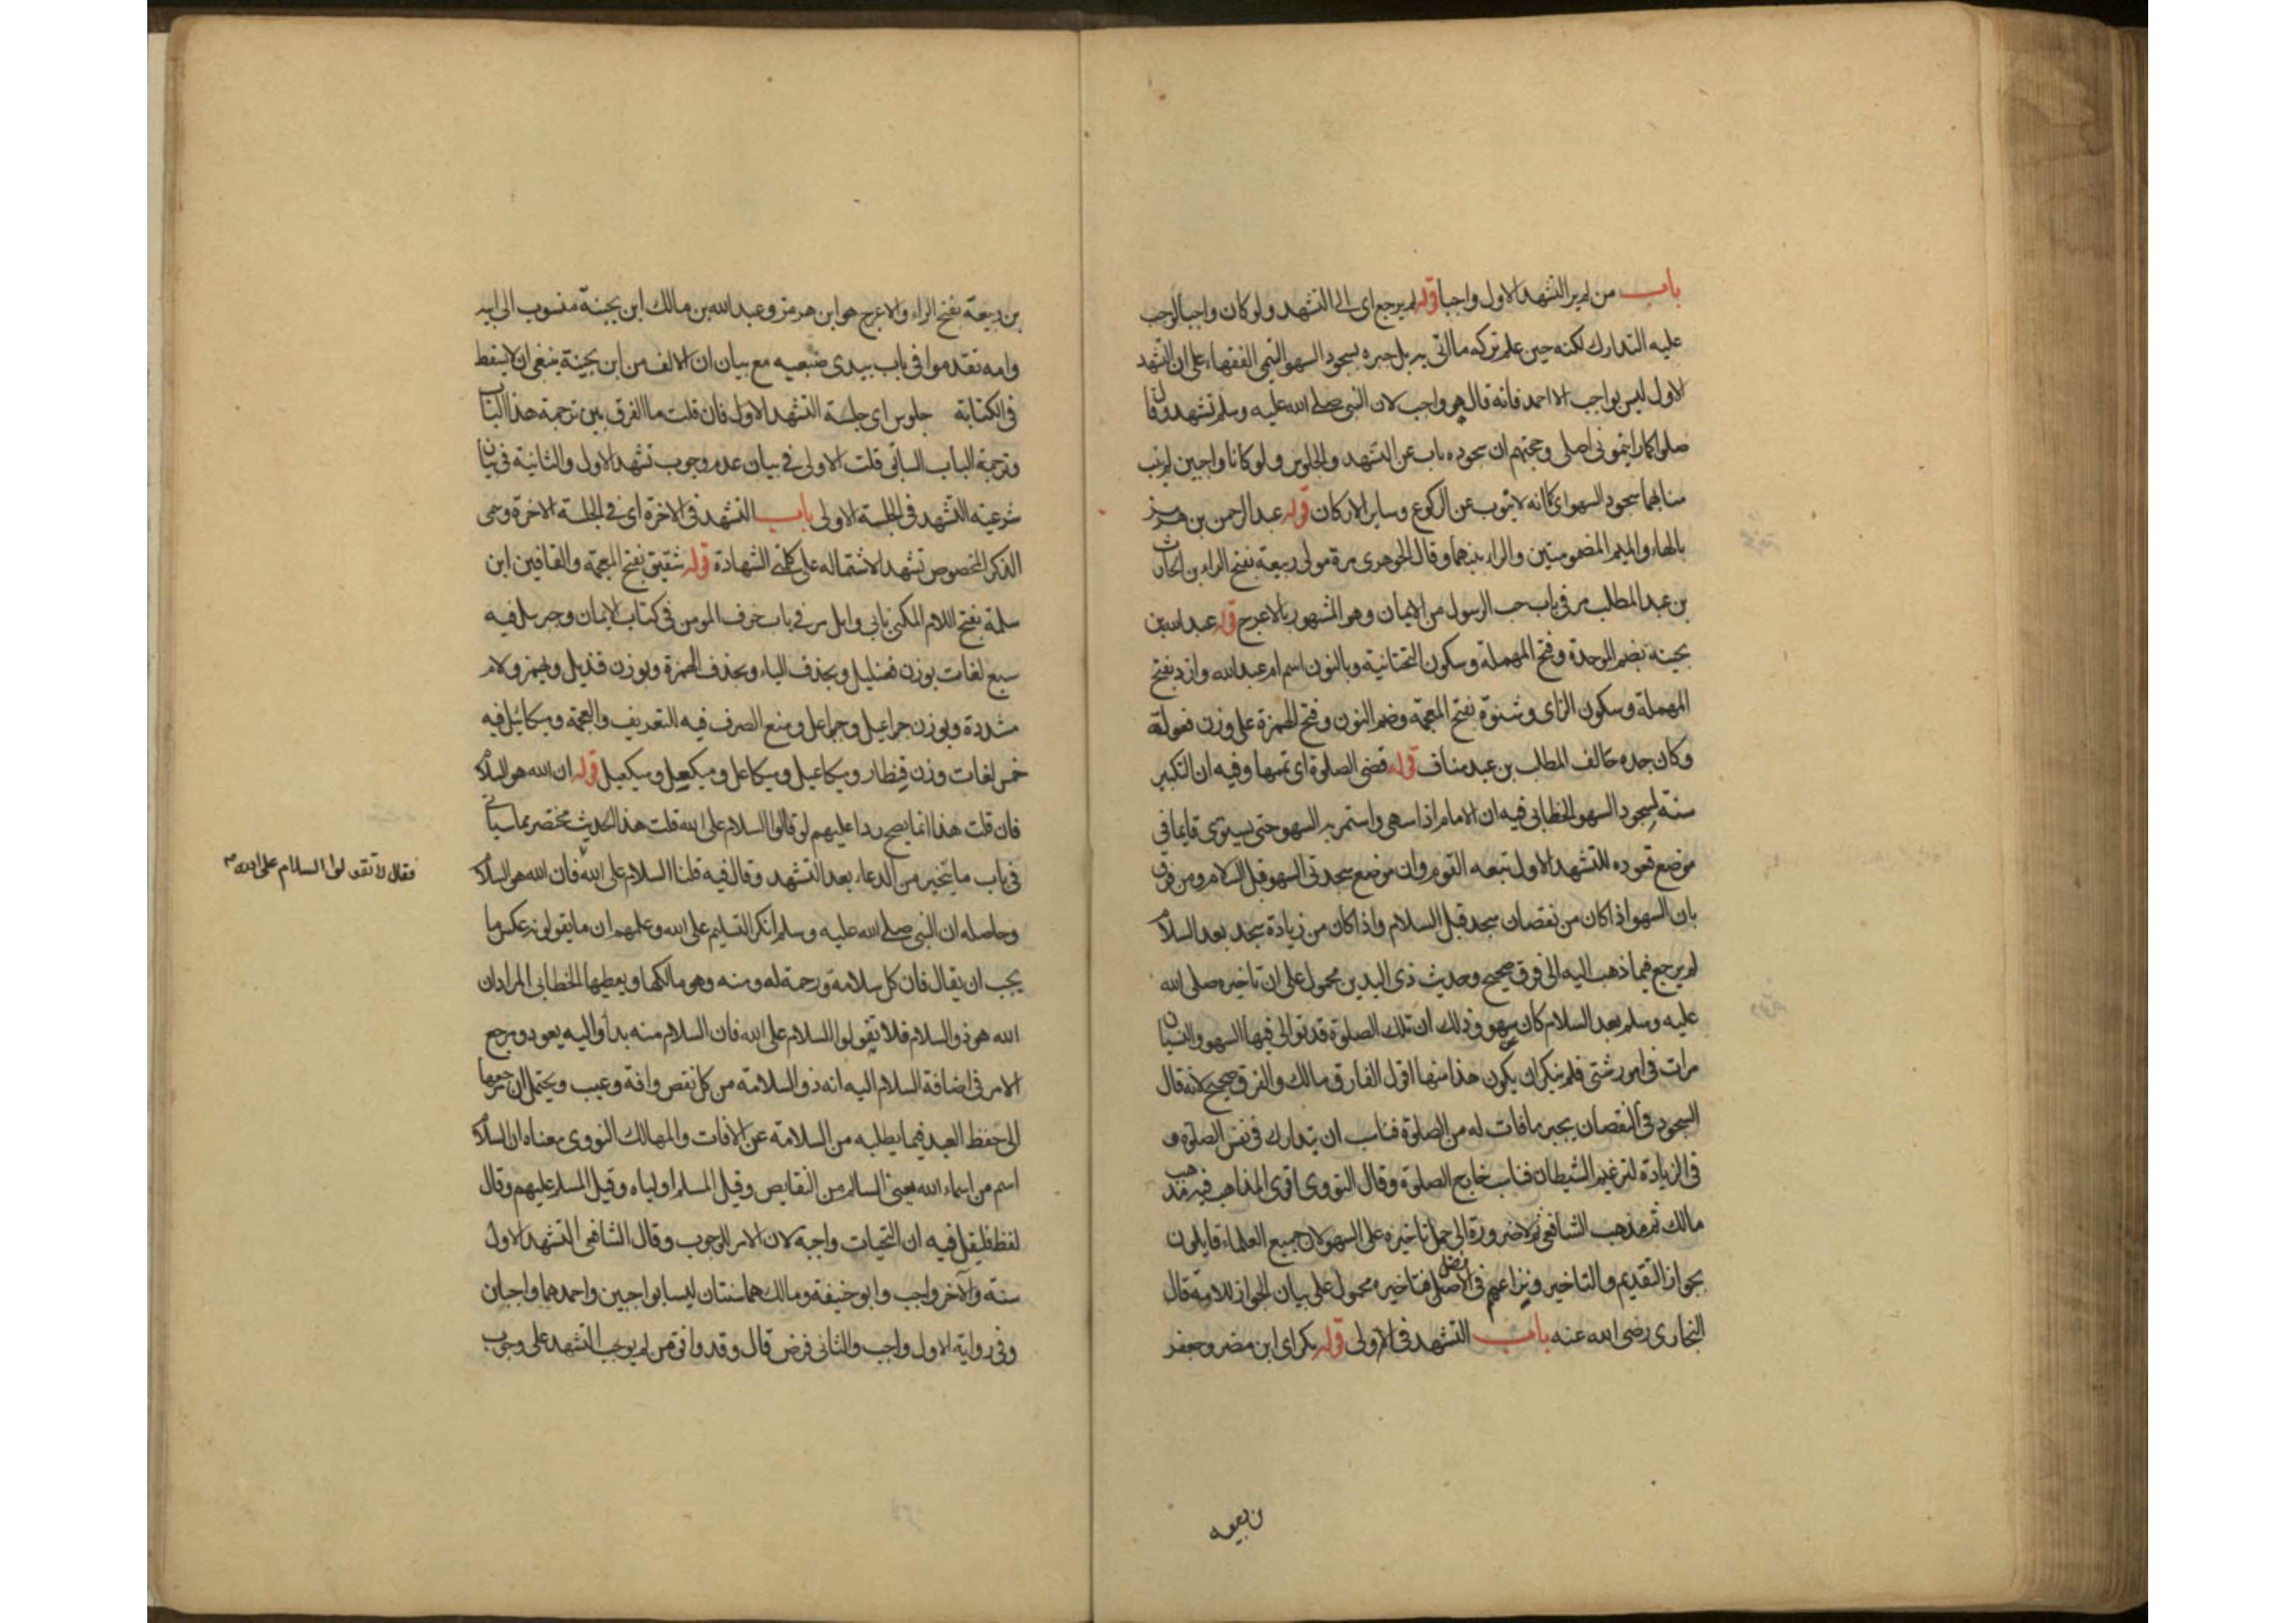 باب من لم ير التشهد الاول واجبا قوله لم يرجع اى الى التشهد ولو كان واجبا لوجب
عليه التدارك لكنه حين علم تركه ما اتى به بل جبره بسجود السهو التيمى الفقهاء على ان التشهد
الاول ليس بواجب الا احمد فانه قال هو واجب لان النبى صلى الله عليه وسلم تشهد وقال
صلوا كما رايتمونى اصلى وحجتهم ان سجوده ناب عن التشهد والجلوس ولو كانا واجبين لم ينب
منابهما سجود السهو اى كما انه لا ينوب عن الركوع وساير الاركان قوله عبد الرحمن بن هرمز
بالهاء والميم المضمومتين والراء بينهما وقال الجوهرى مرة مولى ربيعة بفتح الراء بن الحارث
بن عبد المطلب مر فى باب حب الرسول من الايمان وهو المشهور بالاعرج قوله عبد الله بن
بحينة بضم الموحدة وفتح المهملة وسكون التحتانية وبالنون اسم ام عبد الله وازد بفتح
المهملة وسكون الزاى وشنوة بفتح المعجمة وضم النون وفتح الهمزة على وزن فعولة
وكان جده حالف المطلب بن عبد مناف قوله قضى الصلوة اى تممها وفيه ان التكبير
سنة لسجود السهو الخطابى فيه ان الامام اذا سهى واستمر به السهو حتى يستوى قايما فى
موضع قعوده للتشهد الاول تبعه القوم وان موضع سجدتى السهو قبل السلام ومن فرق
بان السهو اذا كان من نقصان سجد قبل السلام واذا كان من زيادة سجد بعد السلام
لم يرجع فيما ذهب اليه الى فرق صحيح وحديث ذى اليدين محمول على ان تاخيره صلى الله
عليه وسلم بعد السلام كان عن سهو وذلك ان تلك الصلوة قد توالى فيها السهو والنسيان
مرات فى امور شتى فلم ينكر ان يكون هذا منها اقول الفارق مالك والفرق صحيح لانه قال
السجود فى النقصان يجبر ما فات له من الصلوة فناسب ان يتدارك فى نفس الصلوة و
فى الزيادة لترغيم الشيطان فناسب خارج الصلوة وقال النووى اقوى المذاهب فيه مذهب
مالك ثم مذهب الشافعى ثم لا ضرورة الى حمل تاخيره على السهو لان جميع العلماء قايلون
بجواز التقديم والتاخير ونزاعهم فى الافضل فتاخيره محمول على بيان الجواز للامة قال
البخارى رضى الله عنه باب التشهد فى الاولى قوله بكر اى ابن مضر وجعفر
بن ربيعه
بن ربيعة بفتح الراء والاعرج هو ابن هرمز وعبد الله بن مالك ابن بحينة منسوب الى ابيه
وامه تقدموا فى باب يبدى ضبعيه مع بيان ان الالف من ابن بحينة ينبغى ان لا يسقط
فى الكتابة جلوس اى جلسة التشهد الاول فان قلت ما الفرق بين ترجمة هذا الباب
وترجمة الباب السابق قلت الاولى فى بيان عدم وجوب تشهد الاول والثانية فى بيان
شرعية التشهد فى الجلسة الاولى باب التشهد فى الاخرة اى فى الجلسة الاخرة وسمى
الذكر المخصوص تشهدا لاشتماله على كلمتى الشهادة قوله شقيق بفتح المعجمة والقافين ابن
سلمة بفتح اللام المكنى بابى وايل مر فى باب خوف المومن فى كتاب الايمان وجبريل فيه
سبع لغات بوزن قندئيل وبحذف الياء وبحذف الهمزة وبوزن قنديل وبهمز ولام
مشددة وبوزن جبراعيل وجبراعل ومنع الصرف فيه للتعريف والعجمة وميكائيل فيه
خمس لغات وزن قنطار وميكاعيل وميكاعل وميكعل وميكعيل قوله ان الله هو السلام
فان قلت هذا انما يصح ردا عليهم لو قالوا السلام على الله قلت هذا الحديث مختصر مما سياتى
فى باب ما يتخير من الدعاء بعد التشهد وقال فيه قلنا السلام على الله فان الله هو السلام
فقال لا تقولوا السلام على الله
وحاصله ان النبى صلى الله عليه وسلم انكر التسليم على الله وعلمهم ان ما يقولونه عكس ما
يجب ان يقال فان كل سلامة ورحمة له ومنه وهو مالكها ويعطيها الخطابى المراد ان
الله هو ذو السلام فلا تقولوا السلام على الله فان السلام منه بدأ واليه يعود ومرجع
الامر فى اضافة السلام اليه انه ذو السلامة من كل نقص وافة وعيب ويحتمل ان مرجعها
الى حفظ العبد فيما يطلبه من السلامة عن الافات والمهالك النووى معناه ان السلام
اسم من اسماء الله يعنى السالم من النقايص وقيل المسلم اولياه وقيل المسلم عليهم وقال
لفظ فليقل فيه ان التحيات واجبة لان الامر للوجوب وقال الشافعى التشهد الاول
سنة والآخر واجب وابو حنيفة ومالك هما سنتان ليسا بواجبين واحمد هما واجبان
وفى رواية الاول واجب والثانى فرض قال وقد وافق من لم يوجب التشهد على وجوب